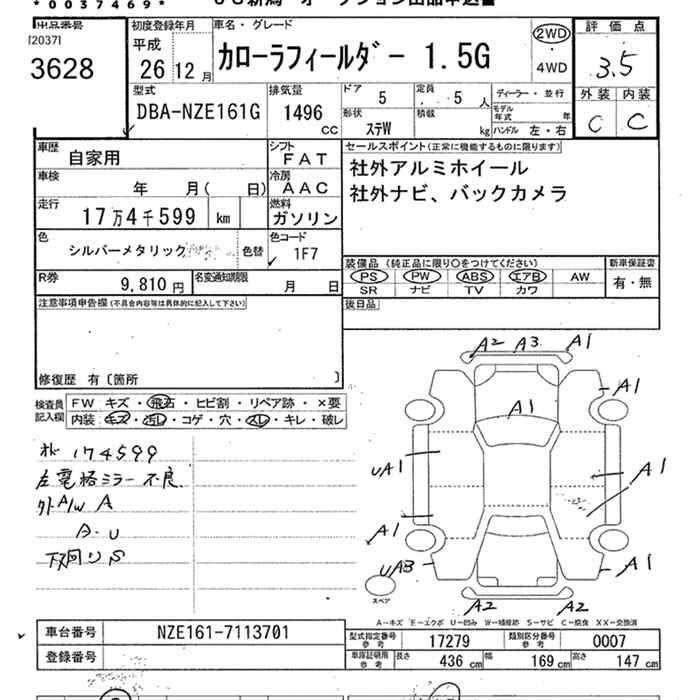 *0037469*
出品番号
[2037]
3628
初度登録年月
平成
26年 12月
車名・グレード
カローラフィールダー 1.5G
2WD
4WD
評価点
3.5
外装 内装
C C
型式
DBA-NZE161G
排気量
1496 cc
ドア 5
定員 5 人
形状 ステW
積載 kg
ディーラー・並行
モデル年式 年
ハンドル 左・右
車歴 自家用
シフト FAT
車検 年 月( 日)
冷房 AAC
走行 17万4千599 km
燃料 ガソリン
色 シルバーメタリック 色替
色コード 1F7
R券 9,810円
名変通知期限 月 日
セールスポイント(正常に機能するものに限ります)
社外アルミホイール
社外ナビ、バックカメラ
装備品(純正品に限り○をつけてください)
PS PW ABS エアB AW
SR ナビ TV カワ
新車保証書
有・無
後日品
注意事項申告欄(不具合内容等は具体的に記入して下さい)
修復歴 有〔箇所 〕
検査員記入欄
FW キズ・飛石・ヒビ割・リペア跡・×要
内装 キズ・汚れ・コゲ・穴・スレ・キレ・破レ
オド 174599
左電格ミラー不良
外A/W A
A・U
下回りS
A2 A3 A1
A1
A1
UA1
A1
A1
UA3
A1
A2 A2
スペア
A-キズ E-エクボ U-凹み W-補修跡 S-サビ C-腐食 XX-交換済
車台番号 NZE161-7113701
登録番号
型式指定番号 参考 17279
類別区分番号 参考 0007
車庫証明用 参考 長さ 436 cm 幅 169 cm 高さ 147 cm